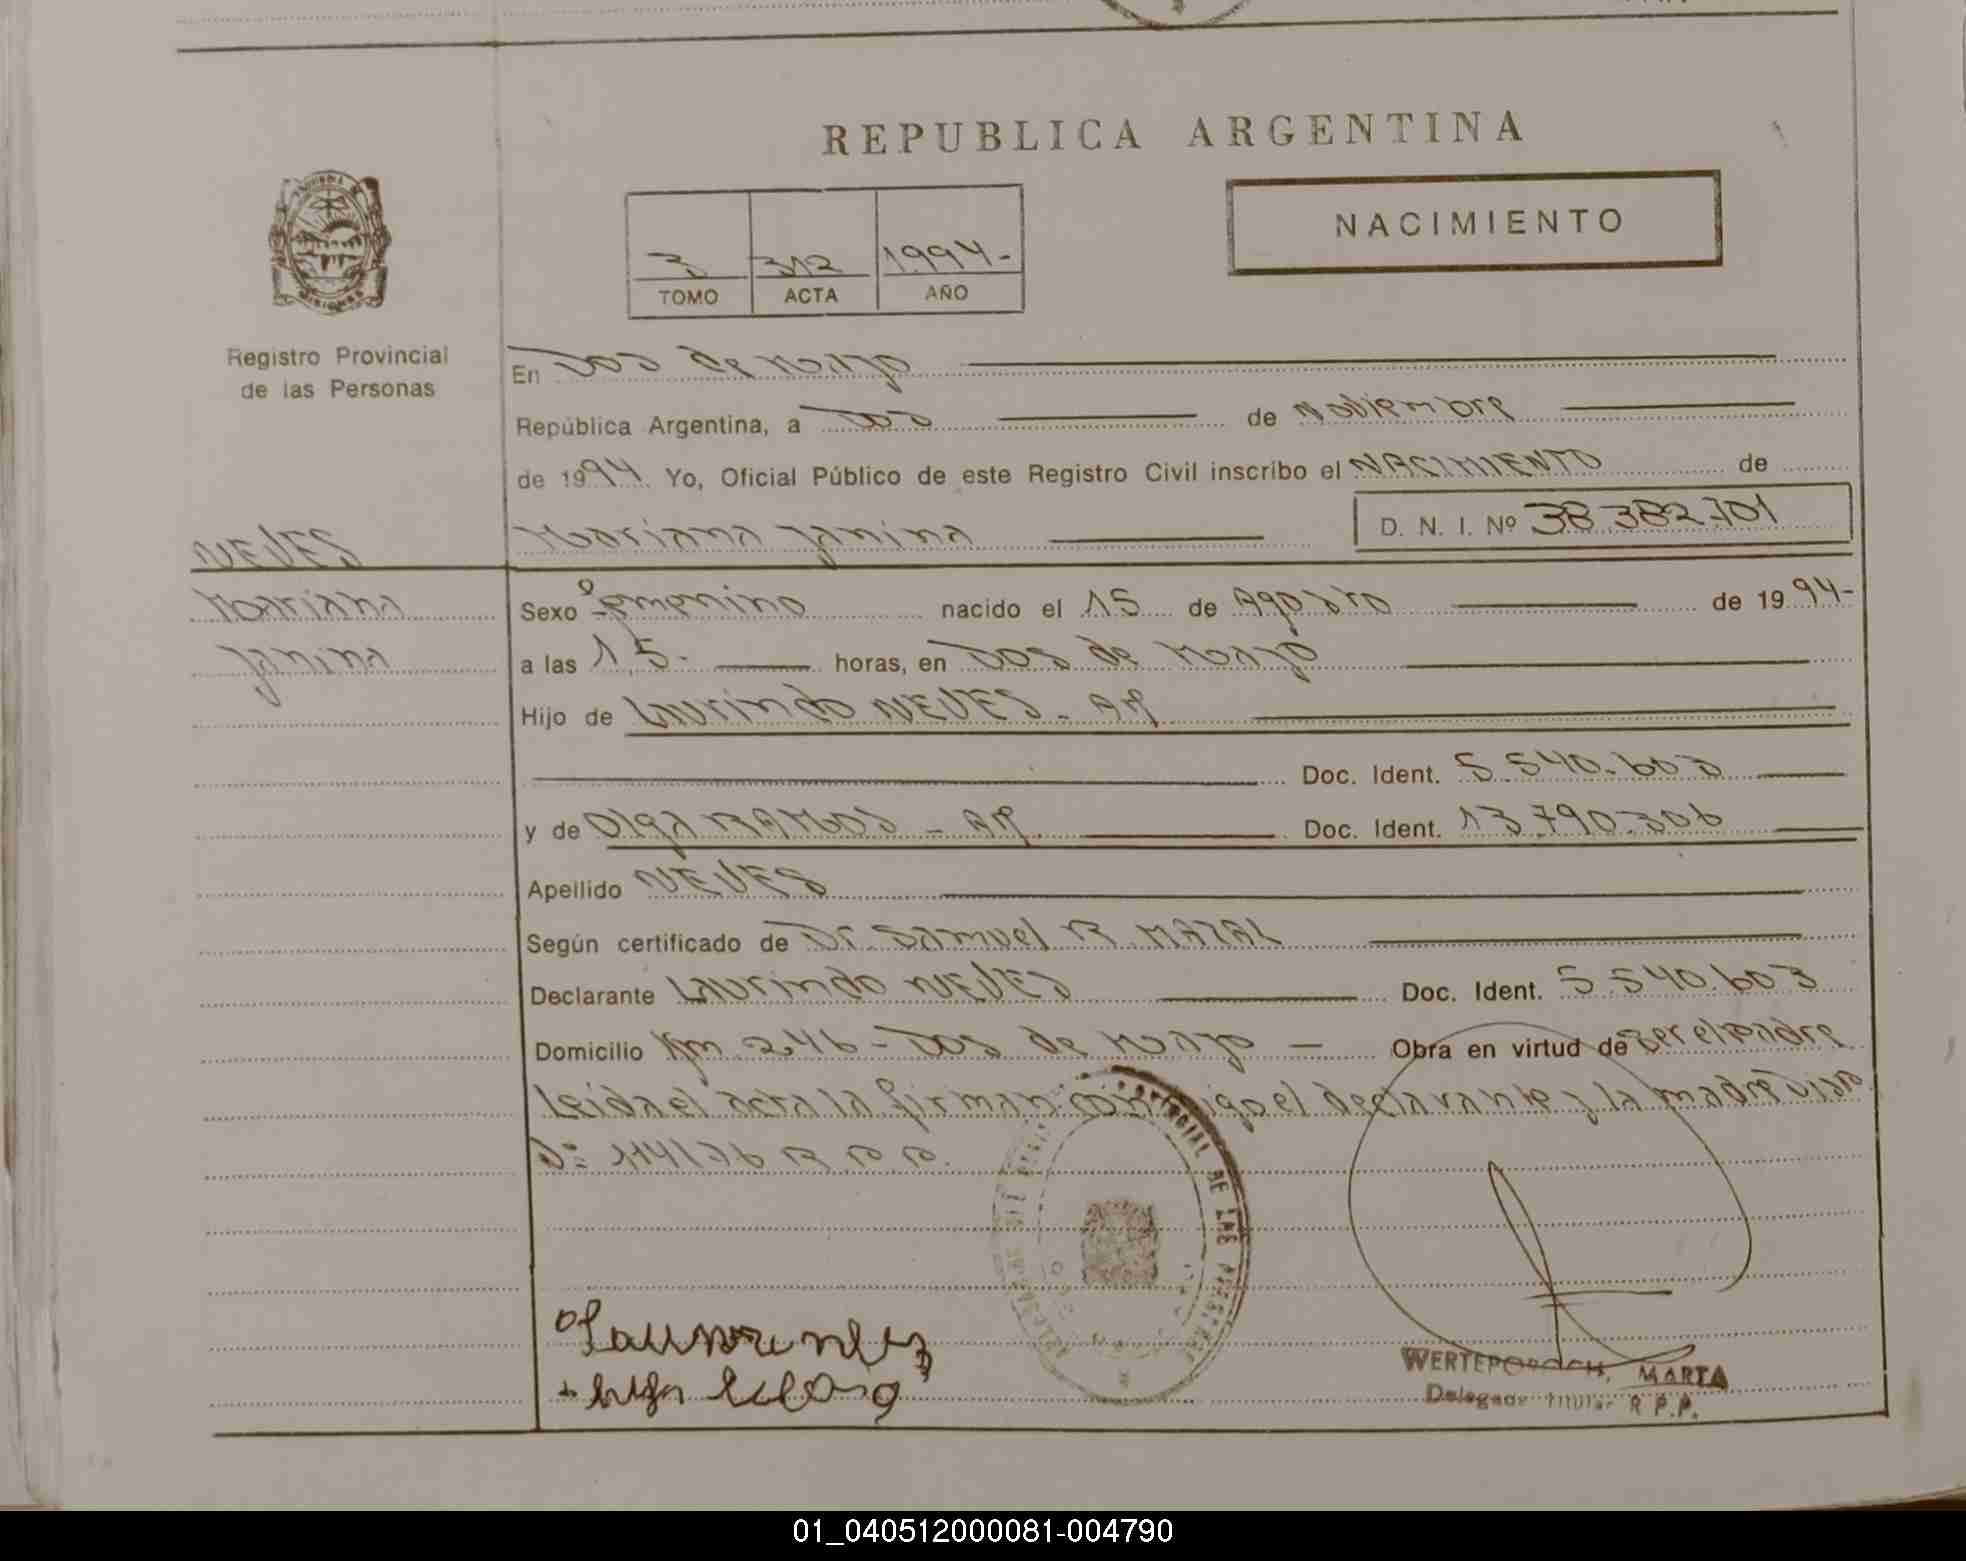 REPUBLICA ARGENTINA
NACIMIENTO
3 312 1994-
TOMO ACTA AÑO
Registro Provincial
de las Personas
En Dos de Mayo
República Argentina, a Dos de Noviembre
de 1994. Yo, Oficial Público de este Registro Civil inscribo el NACIMIENTO de
D. N. I. Nº 38.382.701
NEVES Mariana Janina
Mariana
Janina
Sexo Femenino nacido el 15 de Agosto de 1994-
a las 15.- horas, en Dos de Mayo
Hijo de Laurindo NEVES - Ar
Doc. Ident. 5.540.603
y de Olga RAMOS - Ar. Doc. Ident. 13.790.306
Apellido NEVES
Según certificado de Dr. Samuel R. MAZAL
Declarante Laurindo NEVES Doc. Ident. 5.540.603
Domicilio Km 246 - Dos de Mayo - Obra en virtud de ser el padre
Leida el acta la firman conmigo el declarante y la madre Disp.
Nº 114/76 R.P.P.
PROVINCIAL DE LAS PERSONAS
WERTEPOROCH, MARTA
Delegado titular R.P.P.
01_040512000081-004790